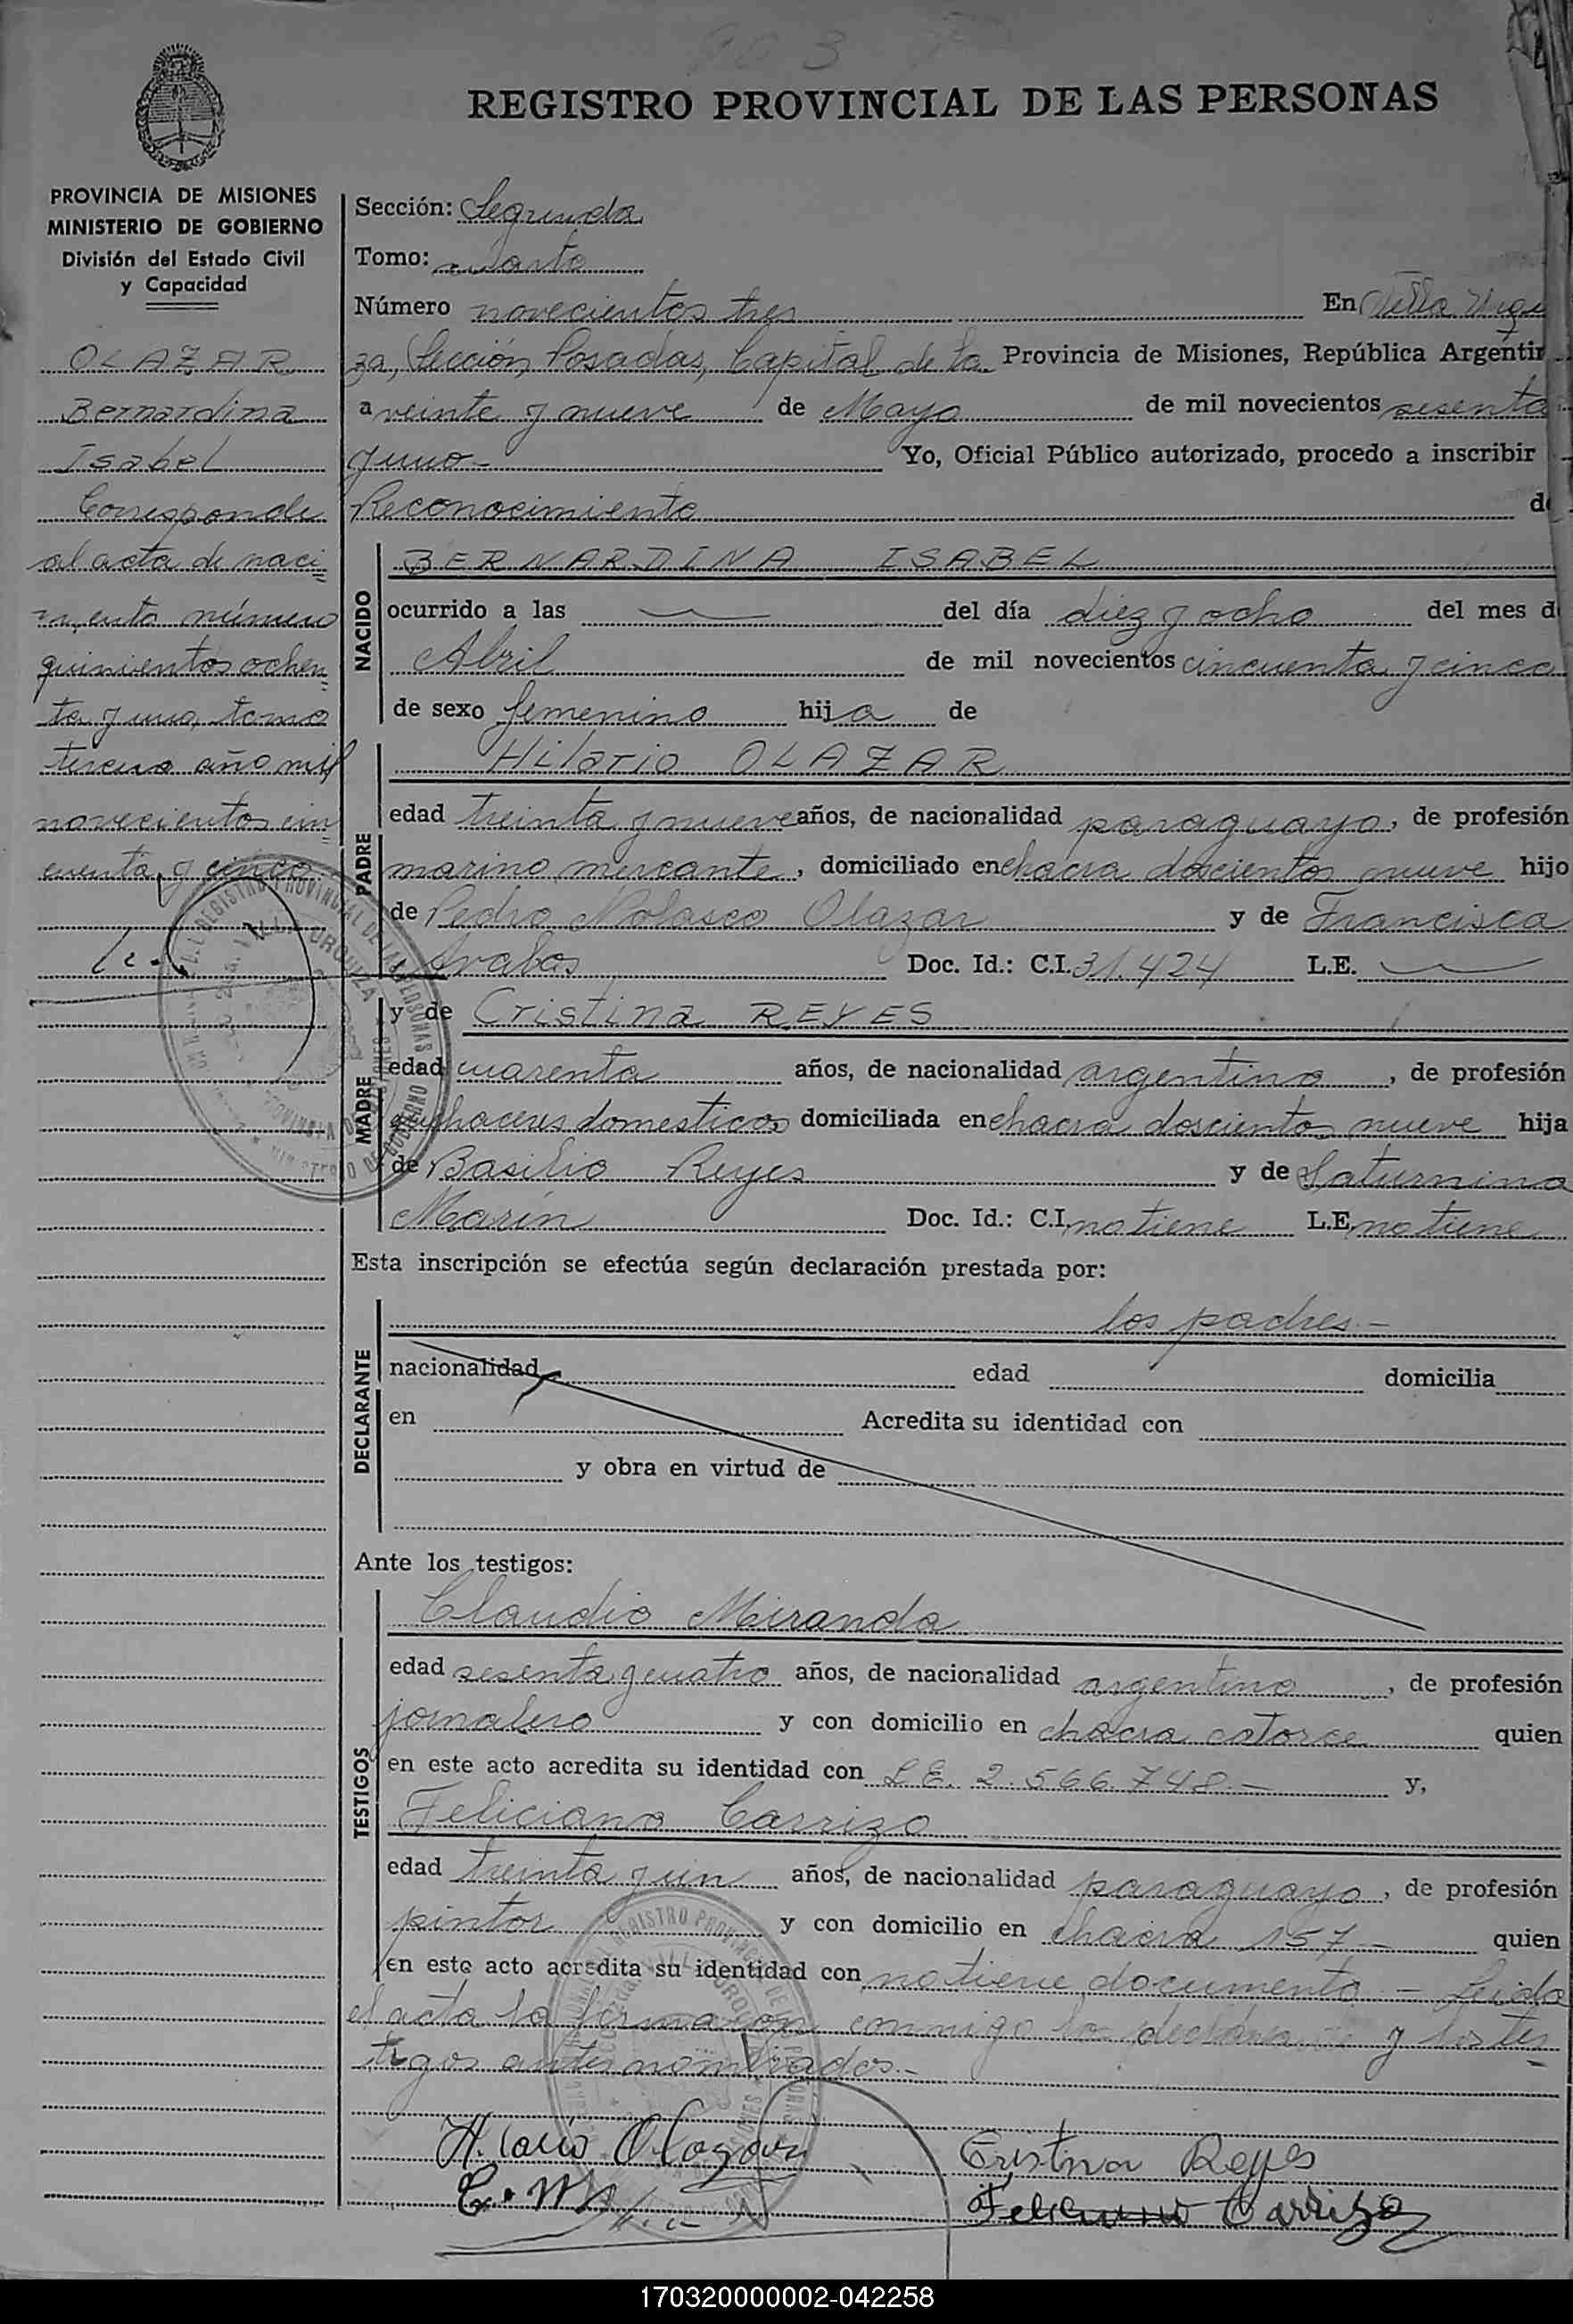 903
REGISTRO PROVINCIAL DE LAS PERSONAS
PROVINCIA DE MISIONES
MINISTERIO DE GOBIERNO
División del Estado Civil
y Capacidad
OLAZAR
Bernardina
Isabel
Corresponde
al acta de naci
miento número
quinientos ochen
ta y uno, tomo
tercero año mil
novecientos cin
cuenta y cinco.
Sección: Segunda
Tomo: cuarto
Número novecientos tres En Villa Urqui
za, Sección Posadas, Capital de la Provincia de Misiones, República Argentin
a veinte y nueve de Mayo de mil novecientos sesenta
y uno- Yo, Oficial Público autorizado, procedo a inscribir
Reconocimiento de
NACIDO
BERNARDINA ISABEL
ocurrido a las — del día diez y ocho del mes d
Abril de mil novecientos cincuenta y cinco
de sexo femenino hija de
PADRE
Hilario OLAZAR
edad treinta y nueve años, de nacionalidad paraguayo, de profesión
marino mercante, domiciliado en chacra doscientos nueve hijo
de Pedro Nolasco Olazar y de Francisca
Doc. Id.: C.I. 31.424 L.E. —
MADRE
y de Cristina REYES
edad cuarenta años, de nacionalidad argentina, de profesión
quehaceres domesticos domiciliada en chacra doscientos nueve hija
de Basilio Reyes y de Saturnina
Marín Doc. Id.: C.I. no tiene L.E. no tiene
Esta inscripción se efectúa según declaración prestada por:
DECLARANTE
los padres.-
nacionalidad edad domicilia
en Acredita su identidad con
y obra en virtud de
Ante los testigos:
TESTIGOS
Claudio Miranda
edad sesenta y cuatro años, de nacionalidad argentino, de profesión
jornalero y con domicilio en chacra catorce quien
en este acto acredita su identidad con L.E. 2.566.748.- y,
Feliciano Carrizo
edad treinta y un años, de nacionalidad paraguayo, de profesión
pintor y con domicilio en chacra 157- quien
en este acto acredita su identidad con no tiene documento.- Leida
el acta la firmaron conmigo y los tes
tigos antes nombrados.-
Hilario Olazar
Cristina Reyes
C. M.
Feliciano Carrizo
170320000002-042258